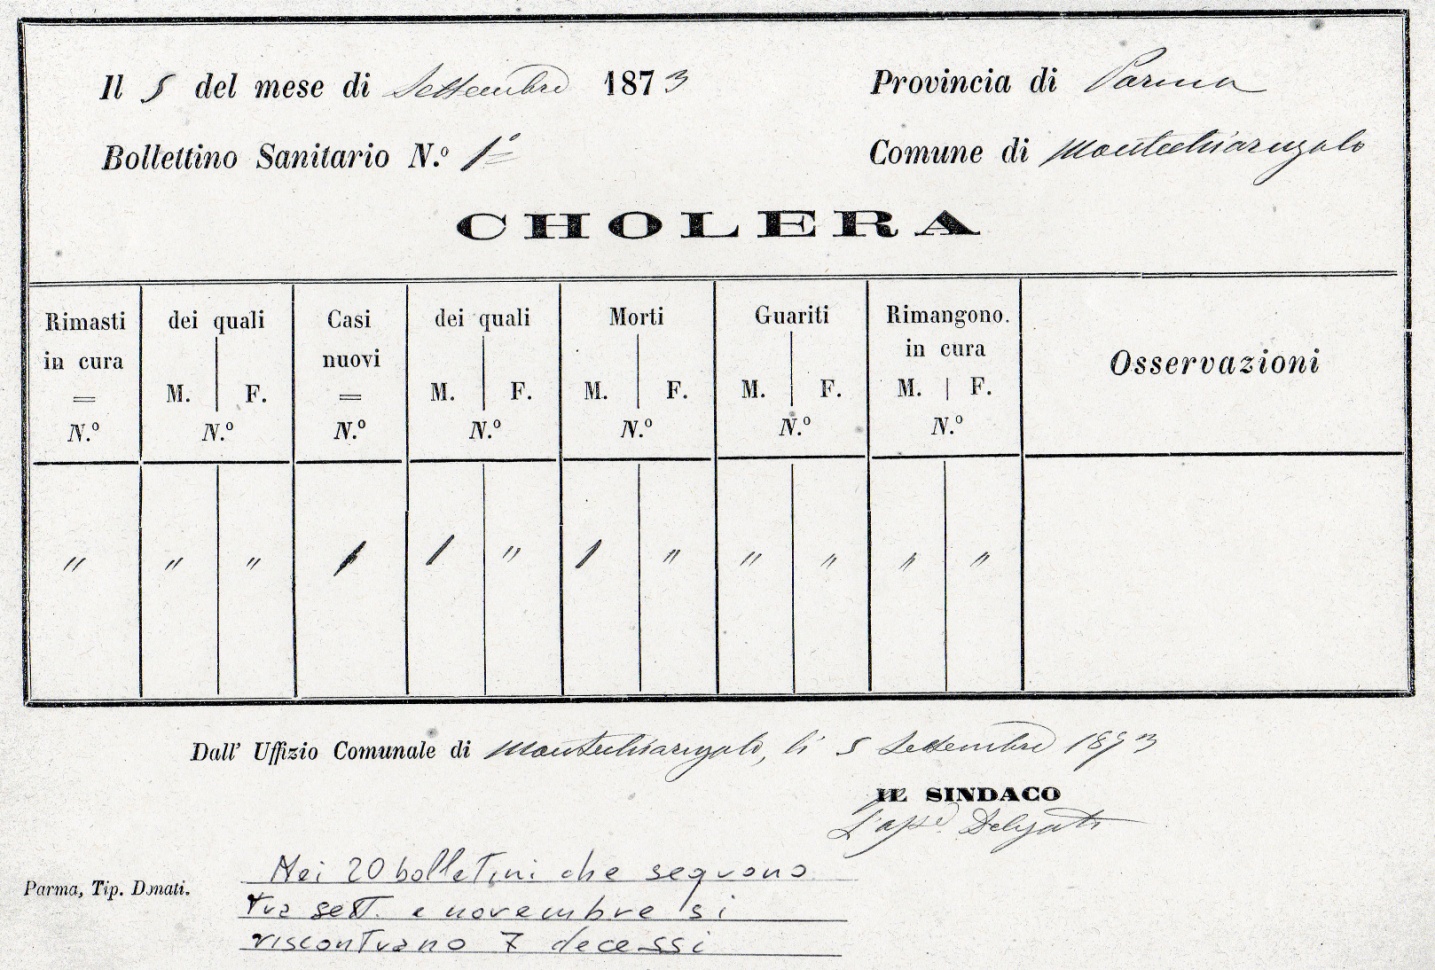 Il 5 del mese di Settembre 1873
Provincia di Parma
Bollettino Sanitario N.º 1º
Comune di Montechiarugolo
CHOLERA
Rimasti in cura = N.º
dei quali M. F. N.º
Casi nuovi = N.º
dei quali M. F. N.º
Morti M. F. N.º
Guariti M. F. N.º
Rimangono. in cura M. F. N.º
Osservazioni
" " " 1 1 " 1 " " " " "
Dall' Uffizio Comunale di Montechiarugolo, li 5 Settembre 1873
IL SINDACO
L'assre Delegato
Parma, Tip. Donati.
Nei 20 bolletini che seguono
tra sett. e novembre si
riscontrano 7 decessi